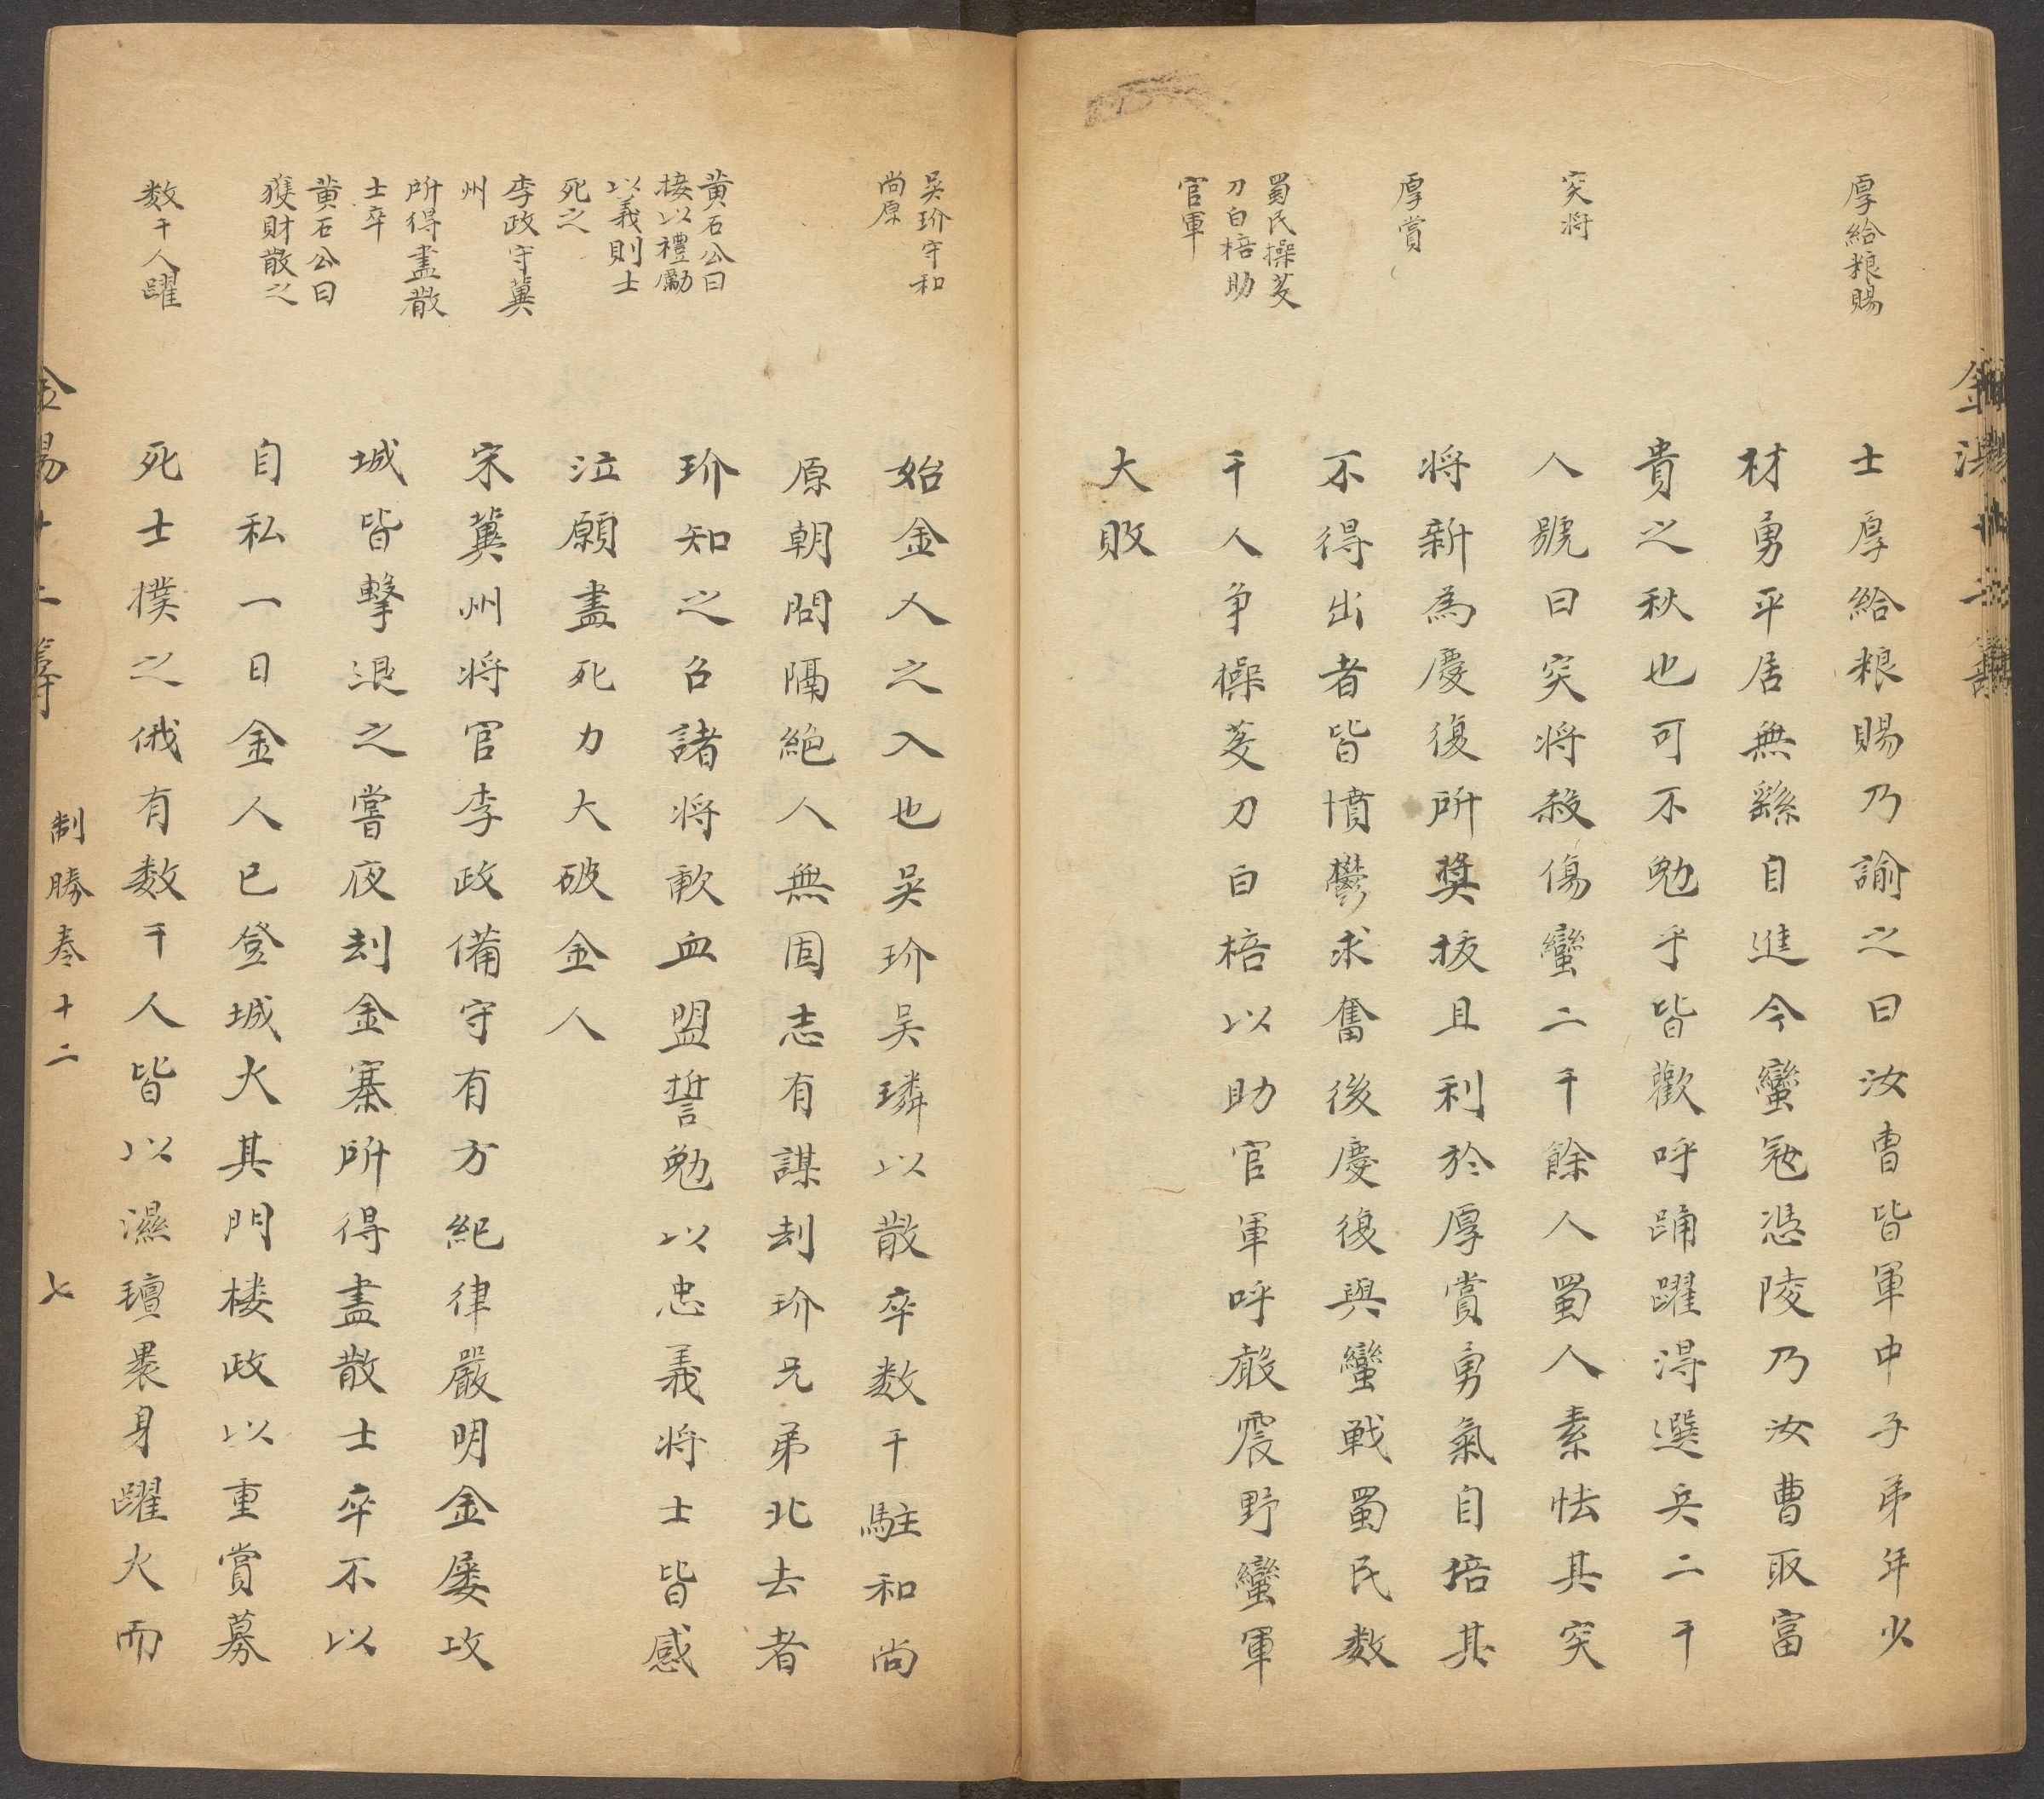 厚給粮賜
突将
厚賞
蜀民操芟
刀白棓助
官軍
士厚給粮賜乃諭之曰汝曹皆軍中子弟年少
材勇平居無繇自進今蠻冦憑陵乃汝曹取富
貴之秋也可不勉乎皆歡呼踊躍得選兵二千
人號曰突将殺傷蠻二千餘人蜀人素怯其突
将新為慶復所奬拔且利於厚賞勇氣自培其
不得出者皆憤鬱求奮後慶復與蠻戦蜀民数
千人争操芟刀白棓以助官軍呼聲震野蠻軍
大敗
吳玠守和
尚原
黄石公曰
接以禮勵
以義則士
死之
李政守冀
州
所得盡散
士卒
黄石公曰
獲財散之
数千人躍
始金人之入也吳玠吳璘以散卒数千駐和尚
原朝問隔絶人無固志有謀刦玠兄弟北去者
玠知之召諸将歃血盟誓勉以忠義将士皆感
泣願盡死力大破金人
宋冀州将官李政備守有方紀律嚴明金屡攻
城皆擊退之嘗夜刦金寨所得盡散士卒不以
自私一日金人已登城火其門楼政以重賞募
死士撲之俄有数千人皆以濕氊褁身躍火而
制勝奏十二
七